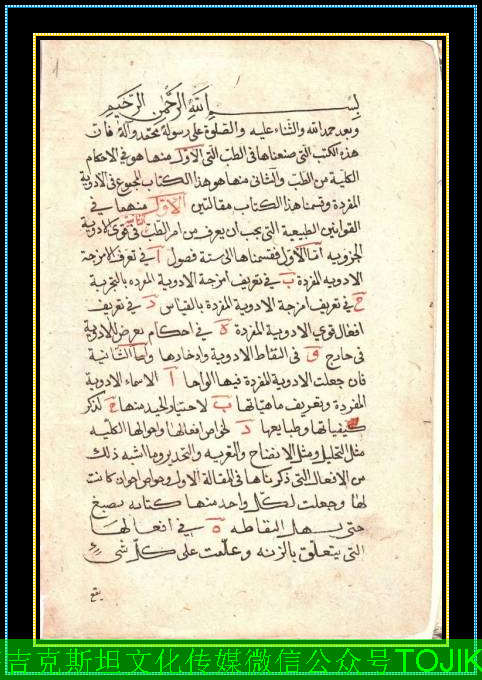 بسم الله الرحمن الرحيم
وبعد حمد الله والثناء عليه والصلوة على رسوله محمد وآله فان
هذه الكتب التى صنعناها فى الطب التى الاول منها هو فى الاحكام
الكلية من الطب والثانى منها هو هذا الكتاب المجموع فى الادوية
المفردة وقسمنا هذا الكتاب مقالتين الاولى منهما فى
القوانين الطبيعية التى يجب ان يعرف من امر الطب فى قوى الادوية
الجزوية اما الاولى فقسمناها الى ستة فصول ا فى تعرف امزجة
الادويه المفردة ب فى تعريف امزجة الادوية المفرده بالتجربة
ج فى تعريف امزجة الادوية المفردة بالقياس د فى تعريف
افعال قوى الادوية المفردة ه فى احكام يعرض للادوية
فى خارج و فى التقاط الادوية وادخارها واما الثانية
فان جعلت الادوية المفردة فيها الواحا ا الاسماء الادوية
المفردة وتعريف ماهياتها ب لاختيار الجيد منها ج لذكر
كيفياتها وطبايعها د لخواص افعالها واحوالها الكليه
مثل التحليل ومثل الانضاج والتغريه والتخدير وما اشبه ذلك
من الافعال التى ذكرناها فى المقالة الاولى وخواص اخر ان كانت
لها وجعلت لكل واحد منها كتابه بصبغ
حتى يسهل التقاطه ه فى افعالها
التى يتعلق بالزينه وعلمت على كل شى
يقع
吉克斯坦文化传媒微信公众号TOJIK